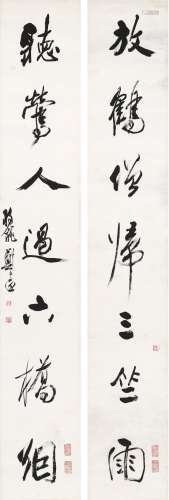 放鶴僧歸三竺雨
聽鶯人過六橋烟